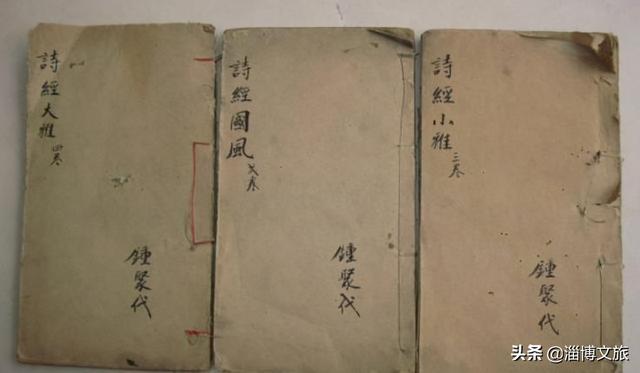 詩經大雅 四卷
鍾聚代
詩經國風 卷
鍾聚代
詩經小雅 三卷
鍾聚代
头条 @淄博文旅